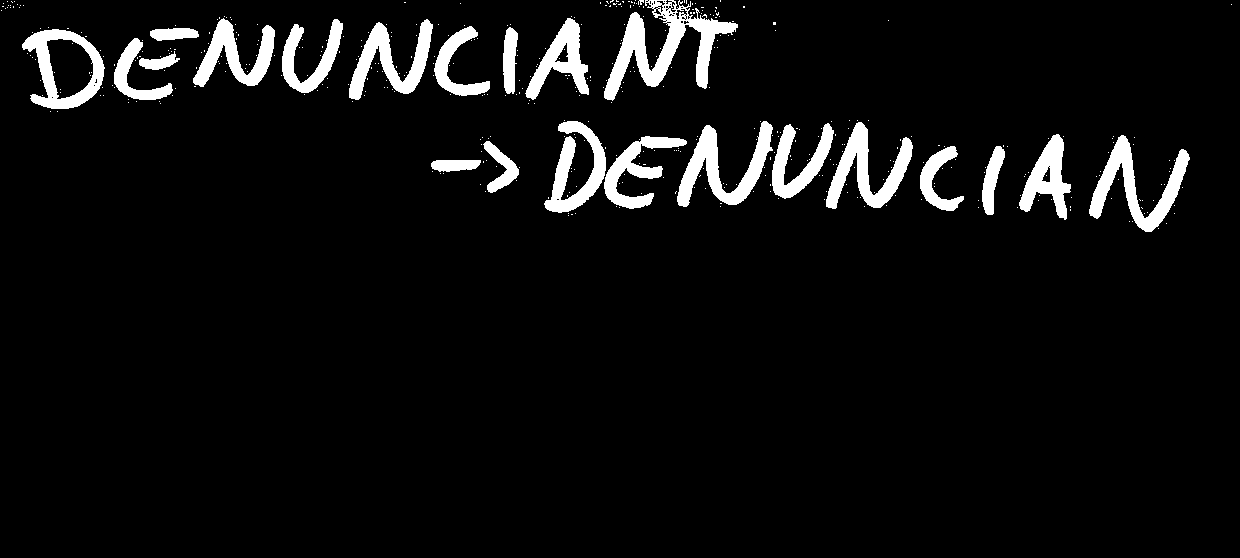 DENUNCIANT
-> DENUNCIAN